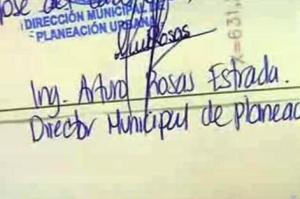 José de
DIRECCIÓN MUNICIPAL DE
PLANEACIÓN URBANA
Rosas
X=631,
Ing. Arturo Rosas Estrada.
Director Municipal de planeac